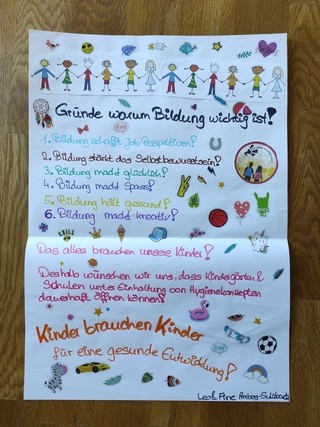 Gründe warum Bildung wichtig ist!
1. Bildung schafft Job Perspektiven!
2. Bildung stärkt das Selbstbewusstsein!
3. Bildung macht glücklich!
4. Bildung macht Spass!
5. Bildung hält gesund!
6. Bildung macht kreativ!
Das alles brauchen unsere Kinder!
Deshalb wünschen wir uns, dass Kindergärten &
Schulen unter Einhaltung von Hygienekonzepten
dauerhaft öffnen können!
Kinder brauchen Kinder
für eine gesunde Entwicklung!
Leo & Pine Amberg-Sulzbach